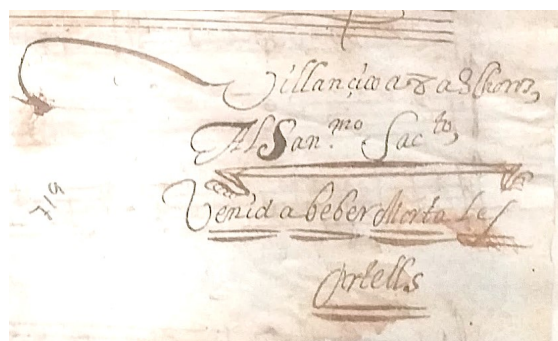 Villançico a 8
Al San.mo Sac.to,
Venid a beber Mortales
Ortells
719